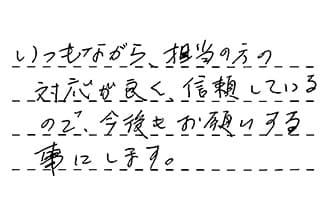 いつもながら、担当の方の
対応が良く、信頼している
ので、今後もお願いする
事にします。